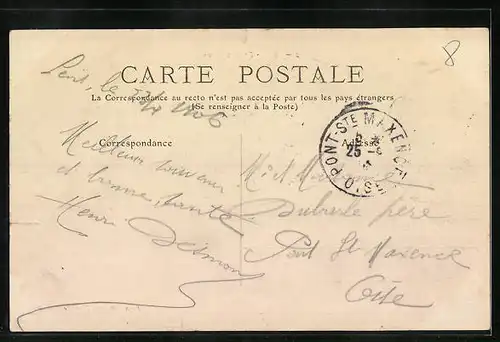 8
CARTE POSTALE
La Correspondance au recto n'est pas acceptée par tous les pays étrangers
(Se renseigner à la Poste)
Correspondance
Adresse
le 1906
Meilleur souvenir
et bonne santé
Henri
PONT-STE MAXENCE
OISE
25
M. et Madame
père
Pont Ste Maxence
Oise